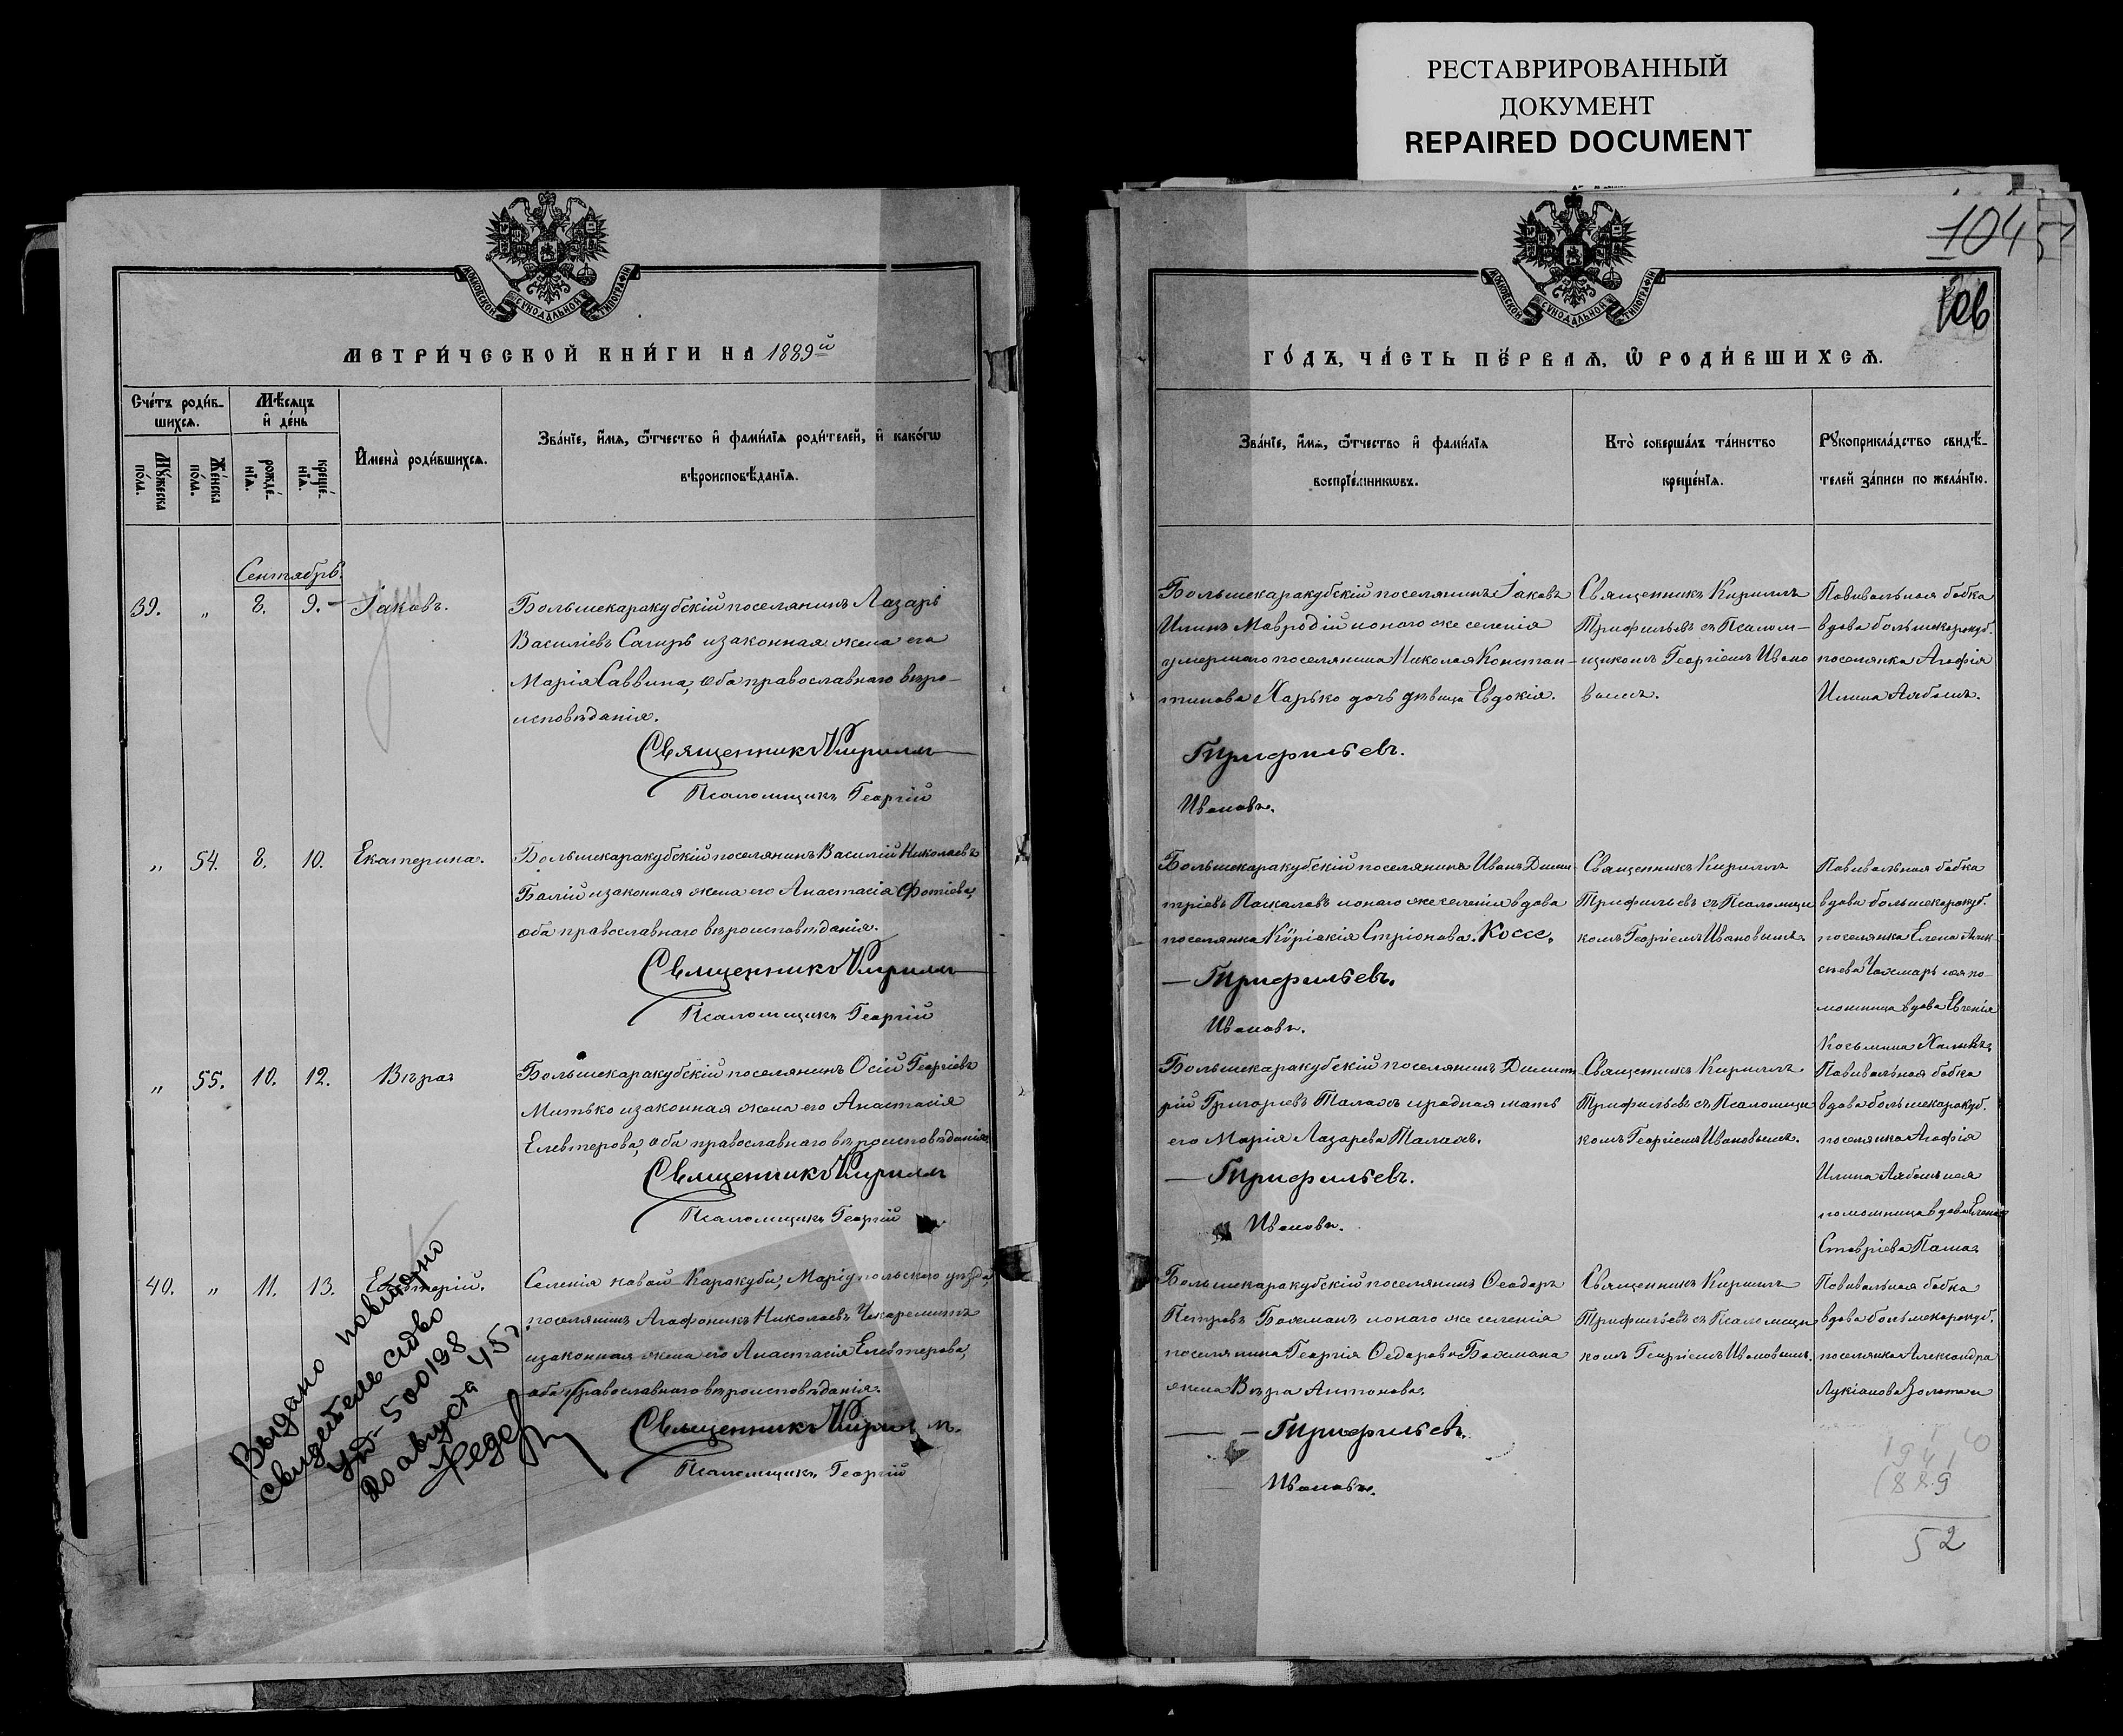 РЕСТАВРИРОВАННЫЙ
ДОКУМЕНТ
REPAIRED DOCUMENT
МОСКОВСКОЙ СѴНОДАЛЬНОЙ ТИПОГРАФІИ
МЕТРИ́ЧЕСКОЙ КНИ́ГИ НА 1889й
Сче́тъ роди́в-
шихсѧ.
Мѣ́сѧцъ
и҆ де́нь
Мꙋ́жеска
по́ла.
Же́нска
по́ла.
рожде́-
нїѧ.
креще́-
нїѧ.
И҆мена̀ роди́вшихсѧ.
Зва́нїе, и҆́мѧ, ѻ҆́тчество и҆ фами́лїѧ роди́телей, и҆ како́гѡ
вѣроисповѣ́данїѧ.
Сентябрь.
39. „ 8. 9. Іаковъ.
Большекаракубскій поселянинъ Лазарь
Василіевъ Сагиръ и законная жена его
Марія Саввина, оба православнаго вѣро-
исповѣданія.
Священникъ Кирилл
Псаломщикъ Георгій
„ 54. 8. 10. Екатерина.
Большекаракубскій поселянинъ Василій Николаевъ
Балій и законная жена его Анастасія Фотіева,
оба православнаго вѣроисповѣданія.
Священникъ Кирилл
Псаломщикъ Георгій
„ 55. 10. 12. Вѣра
Большекаракубскій поселянинъ Осій Георгіевъ
Митько и законная жена его Анастасія
Елевтерова, оба православнаго вѣроисповѣданія.
Священникъ Кирилл
Псаломщикъ Георгій
40. „ 11. 13.
Селенія новой Каракубы, Маріупольскаго уѣзда,
поселянинъ Агафоникъ Николаевъ
и законная жена его Анастасія Елевтерова,
оба православнаго вѣроисповѣданія.
Священникъ Кирилл
Псаломщикъ Георгій
Выдано повторно
свидетельство
УЮ-500198
20 августа 45г.
104
106
МОСКОВСКОЙ СѴНОДАЛЬНОЙ ТИПОГРАФІИ
ГО́ДЪ, ЧА́СТЬ ПЕ́РВАѦ, Ѡ҆ РОДИ́ВШИХСѦ.
Зва́нїе, и҆́мѧ, ѻ҆́тчество и҆ фами́лїѧ
воспрїе́мникѡвъ.
Кто̀ соверша́лъ та́инство
креще́нїѧ.
Рꙋкоприкла́дство свидѣ́-
телей за́писи по жела́нїю.
Большекаракубскій поселянинъ Іаковъ
Илинъ Мавродій и онаго же селенія
умершаго поселянина Николая Констан-
тинова Харько дочь дѣвица Евдокія.
Трифильевъ.
Ивановъ.
Священникъ Кириллъ
Трифильевъ съ Псалом-
щикомъ Георгіемъ Ивано
вымъ.
Повивальная бабка
вдова большекаракуб.
поселянка Агафія
Илина
Большекаракубскій поселянинъ Иванъ Дими-
тріевъ Паскаловъ и онаго же селенія вдова
поселянка Кѵріакія Стріонова Коссе.
Трифильевъ.
Ивановъ.
Священникъ Кириллъ
Трифильевъ съ Псаломщи
комъ Георгіемъ Ивановымъ.
Повивальная бабка
вдова большекаракуб.
поселянка Елена
и я по-
мощница вдова Евгенія
Косьмина
Большекаракубскій поселянинъ Димит
рій Григорьевъ Талахъ и родная мать
его Марія Лазарева Талахъ.
Трифильевъ.
Ивановъ.
Священникъ Кириллъ
Трифильевъ съ Псаломщи
комъ Георгіемъ Ивановымъ.
Повивальная бабка
вдова большекаракуб.
поселянка Агафія
Илина
помощница вдова Елена
Ставріева
Большекаракубскій поселянинъ Ѳеодоръ
Петровъ Бахманъ и онаго же селенія
поселянина Георгія Ѳедорова Бахмана
жена Вѣра Антонова.
Трифильевъ.
Ивановъ.
Священникъ Кириллъ
Трифильевъ съ Псаломщи
комъ Георгіемъ Ивановымъ.
Повивальная бабка
вдова большекаракуб.
поселянка Александра
Лукіанова
1941
1889
52